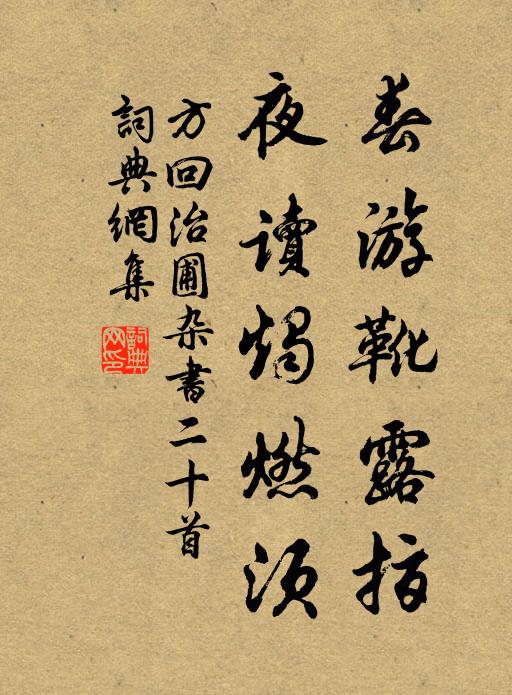 春游靴露指
夜讀燭燃须
方回治圃杂書二十首
詞典網集
詞典网印